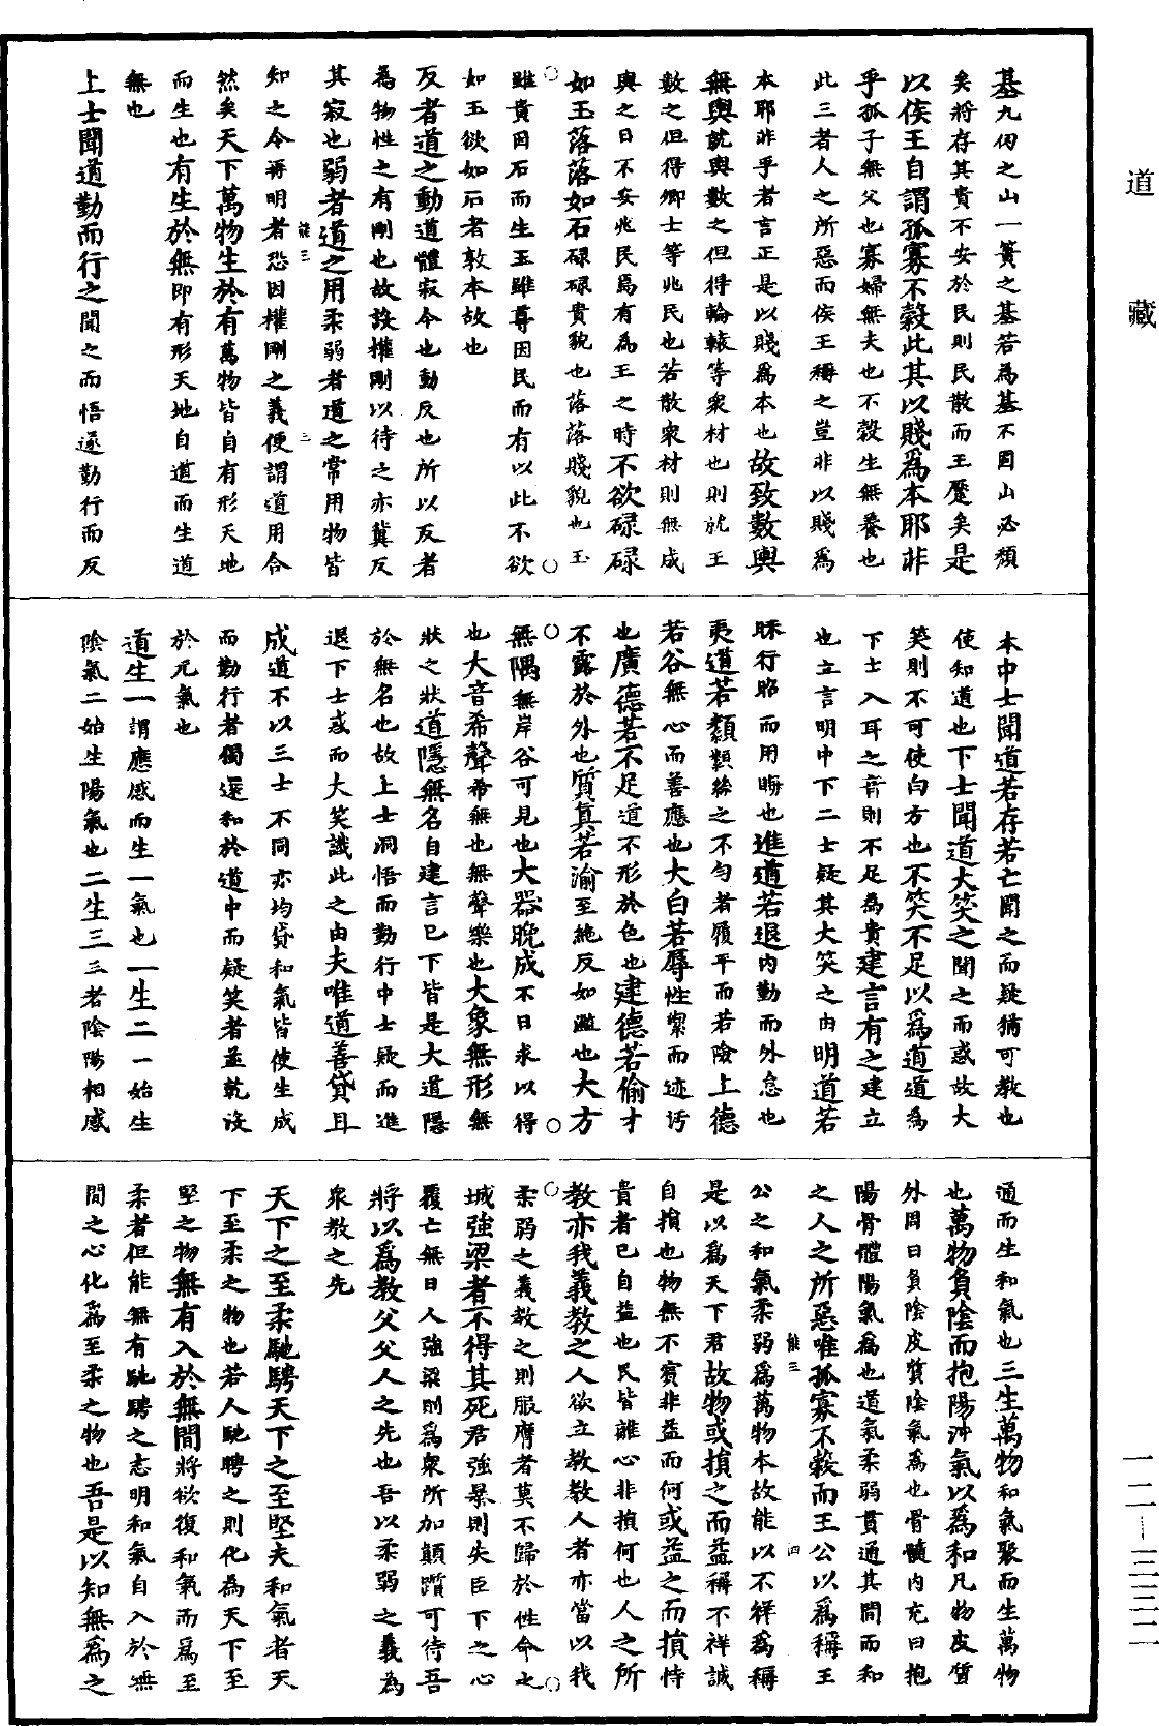 道藏
基九仞之山一簣之基若為基不固山必頹
矣將存其貴不安於民則民散而王蹷矣是
以侯王自謂孤寡不穀此其以賤為本耶非
乎孤子無父也寡婦無夫也不穀生無養也
此三者人之所惡而侯王稱之豈非以賤為
本耶非乎者言正是以賤為本也故致數輿
無輿就輿數之但得輪轅等衆材也則就王
數之但得卿士等兆民也若散衆材則無成
輿之日不安兆民焉有為王之時不欲碌碌
如玉落落如石碌碌貴貌也落落賤貌也玉
雖貴因石而生王雖尊因民而有以此不欲
如玉欲如石者敦本故也
反者道之動道體寂今也動反也所以反者
為物性之有剛也故設權剛以待之亦冀反
其寂也弱者道之用柔弱者道之常用物皆
知之今再明者恐因權剛之義便謂道用合
然矣天下萬物生於有萬物皆自有形天地
而生也有生於無即有形天地自道而生道
無也
上士聞道勤而行之聞之而悟遂勤行而反
本中士聞道若存若亡聞之而疑猶可教也
使知道也下士聞道大笑之聞之而惑故大
笑則不可使向方也不笑不足以為道道為
下士入耳之音則不足為貴建言有之建立
也立言明中下二士疑其大笑之由明道若
昧行昭而用晦也進道若退內勤而外怠也
夷道若纇纇絲之不勻者履平而若險上德
若谷無心而善應也大白若辱性潔而迹污
也廣德若不足道不形於色也建德若偷才
不露於外也質真若渝至純反如濫也大方
無隅無岸谷可見也大器晚成不日求以得
也大音希聲希無也無聲樂也大象無形無
狀之狀道隱無名自建言已下皆是大道隱
於無名也故上士洞悟而勤行中士疑而進
退下士惑而大笑譏此之由夫唯道善貸且
成道不以三士不同亦均貸和氣皆使生成
而勤行者獨還和於道中而疑笑者並乾沒
於元氣也
道生一謂應感而生一氣也一生二一始生
陰氣二始生陽氣也二生三三者陰陽相感
通而生和氣也三生萬物和氣聚而生萬物
也萬物負陰而抱陽沖氣以為和凡物皮質
外周曰負陰皮質陰氣為也骨髓內充曰抱
陽骨體陽氣為也道氣柔弱貫通其間而和
之人之所惡唯孤寡不穀而王公以為稱王
公之和氣柔弱為萬物本故能以不祥為稱
是以為天下君故物或損之而益稱不祥誠
自損也物無不賓非益而何或益之而損恃
貴者已自益也民皆離心非損何也人之所
教亦我義教之人欲立教教人者亦當以我
柔弱之義教之則服膺者莫不歸於性命之
城強梁者不得其死君強暴則失臣下之心
覆亡無日人強梁則為衆所加顛躓可待吾
將以為教父父人之先也吾以柔弱之義為
衆教之先
天下之至柔馳騁天下之至堅夫和氣者天
下至柔之物也若人馳騁之則化為天下至
堅之物無有入於無間將欲復和氣而為至
柔者但能無有馳騁之志明和氣自入於無
間之心化為至柔之物也吾是以知無為之
能三 三
能三 四
一二—三三二